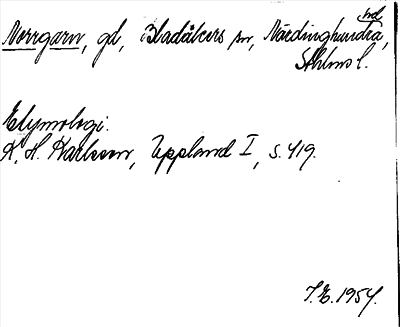 Norrgarn, gd, Bladåkers sn, Närdinghundra hd,
Sthlms l.
Etymologi.
K. H. Karlsson, Uppland I, s. 419.
J. E. 1954.